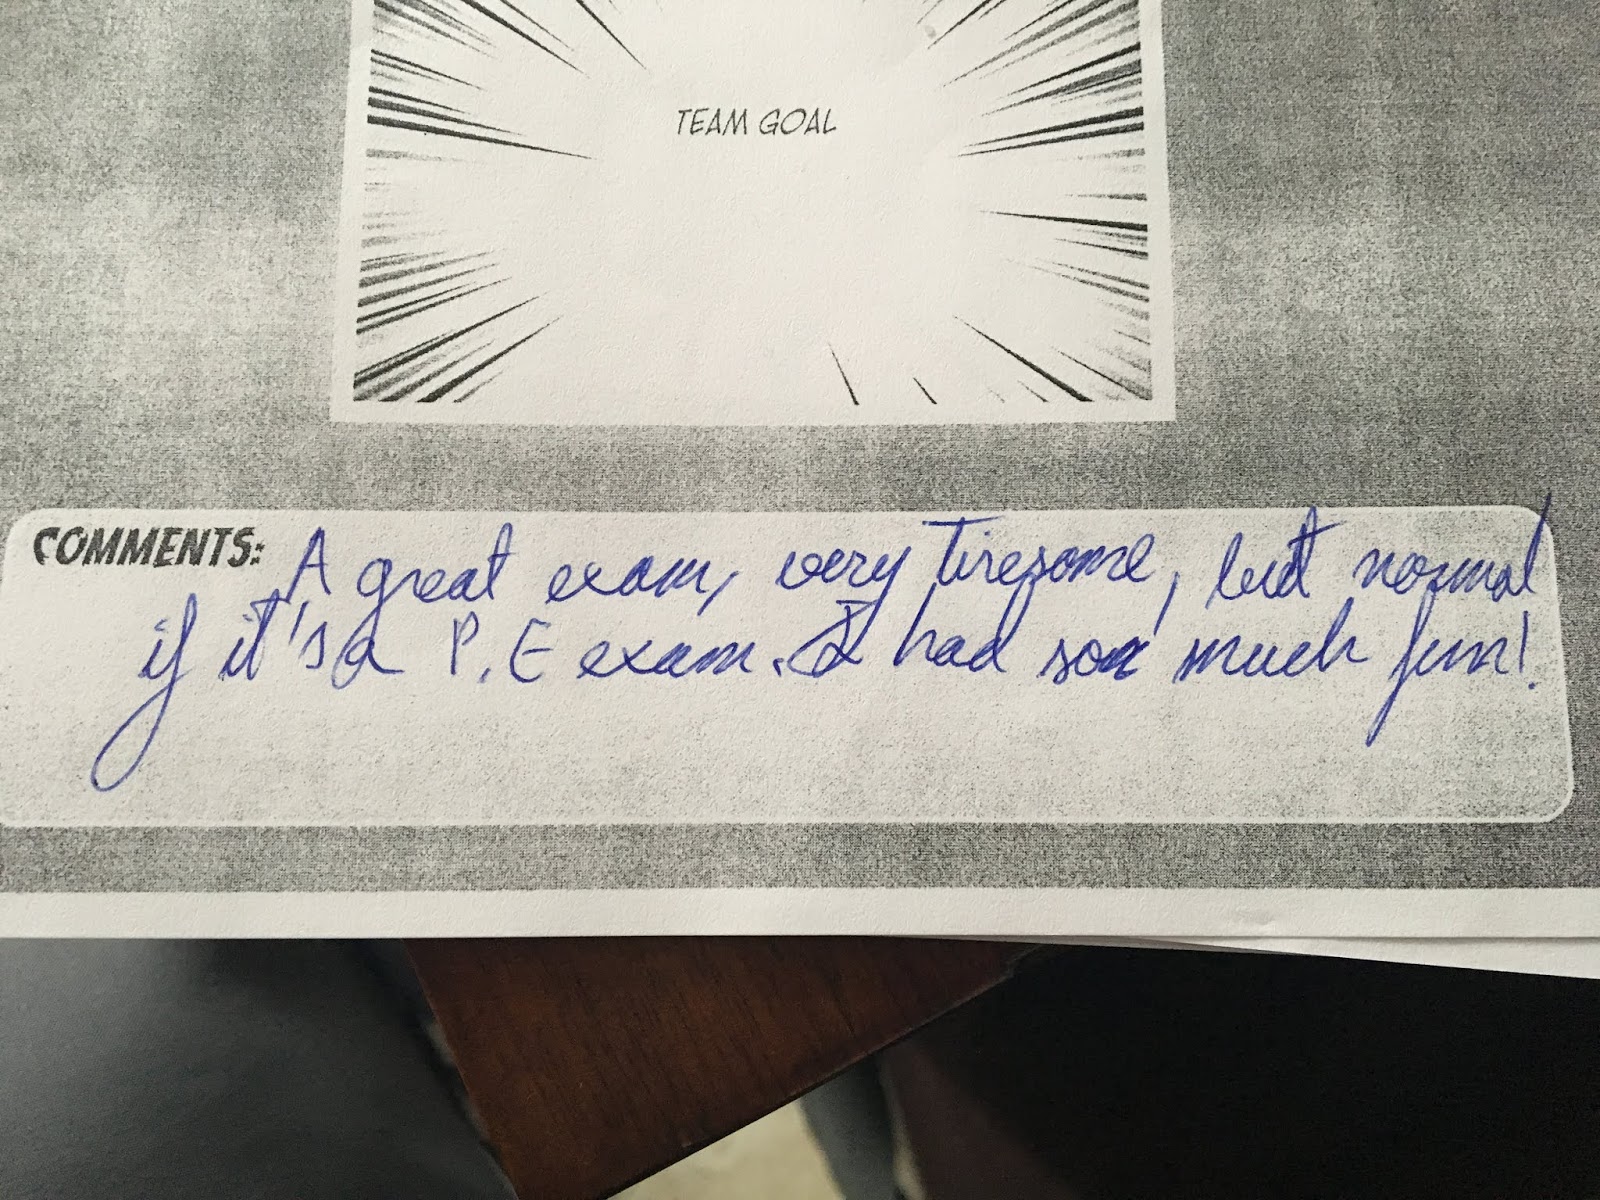 TEAM GOAL
COMMENTS: A great exam, very tiresome, but normal
if it's a P.E exam. I had so much fun!